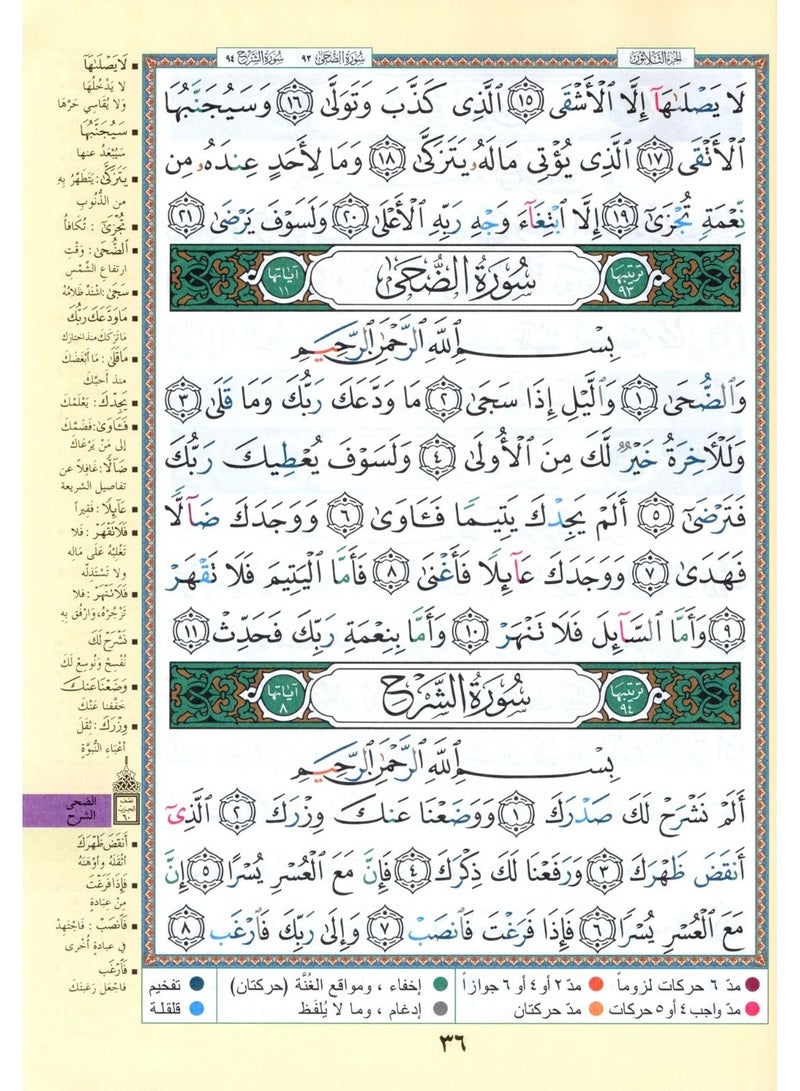 الجزء الثلاثون
سورة الضحى ٩٣ سورة الشرح ٩٤
لَا يَصْلَىٰهَآ إِلَّا ٱلْأَشْقَى ١٥ ٱلَّذِى كَذَّبَ وَتَوَلَّىٰ ١٦ وَسَيُجَنَّبُهَا
ٱلْأَتْقَى ١٧ ٱلَّذِى يُؤْتِى مَالَهُۥ يَتَزَكَّىٰ ١٨ وَمَا لِأَحَدٍ عِندَهُۥ مِن
نِّعْمَةٍ تُجْزَىٰٓ ١٩ إِلَّا ٱبْتِغَآءَ وَجْهِ رَبِّهِ ٱلْأَعْلَىٰ ٢٠ وَلَسَوْفَ يَرْضَىٰ ٢١
ترتيبها ٩٣ سُورَةُ الضُّحَىٰ آياتها ١١
بِسْمِ ٱللَّهِ ٱلرَّحْمَٰنِ ٱلرَّحِيمِ
وَٱلضُّحَىٰ ١ وَٱلَّيْلِ إِذَا سَجَىٰ ٢ مَا وَدَّعَكَ رَبُّكَ وَمَا قَلَىٰ ٣
وَلَلْءَاخِرَةُ خَيْرٌ لَّكَ مِنَ ٱلْأُولَىٰ ٤ وَلَسَوْفَ يُعْطِيكَ رَبُّكَ
فَتَرْضَىٰٓ ٥ أَلَمْ يَجِدْكَ يَتِيمًا فَـَٔاوَىٰ ٦ وَوَجَدَكَ ضَآلًّا
فَهَدَىٰ ٧ وَوَجَدَكَ عَآئِلًا فَأَغْنَىٰ ٨ فَأَمَّا ٱلْيَتِيمَ فَلَا تَقْهَرْ
٩ وَأَمَّا ٱلسَّآئِلَ فَلَا تَنْهَرْ ١٠ وَأَمَّا بِنِعْمَةِ رَبِّكَ فَحَدِّثْ ١١
ترتيبها ٩٤ سُورَةُ الشَّرْحِ آياتها ٨
بِسْمِ ٱللَّهِ ٱلرَّحْمَٰنِ ٱلرَّحِيمِ
أَلَمْ نَشْرَحْ لَكَ صَدْرَكَ ١ وَوَضَعْنَا عَنكَ وِزْرَكَ ٢ ٱلَّذِىٓ
أَنقَضَ ظَهْرَكَ ٣ وَرَفَعْنَا لَكَ ذِكْرَكَ ٤ فَإِنَّ مَعَ ٱلْعُسْرِ يُسْرًا ٥ إِنَّ
مَعَ ٱلْعُسْرِ يُسْرًا ٦ فَإِذَا فَرَغْتَ فَٱنصَبْ ٧ وَإِلَىٰ رَبِّكَ فَٱرْغَب ٨
لَا يَصْلَىٰهَا
لا يَدْخُلُها
ولا يُقَاسِي حَرَّهَا
سَيُجَنَّبُهَا
سَيُبْعَدُ عنها
يَتَزَكَّىٰ: يَتَطَهَّرُ بِهِ
من الذُّنُوبِ
تُجْزَىٰ: تُكَافَأُ
الضُّحَىٰ: وَقْتِ
ارتفاع الشَّمْسِ
سَجَىٰ: اشتدَّ ظلامُهُ
مَا وَدَّعَكَ رَبُّكَ
مَا تَرَكَكَ منذ اختارك
مَا قَلَىٰ: مَا أَبْغَضَكَ
منذ أحبَّك
يَجِدْكَ: يَعْلَمْكَ
فَـَٔاوَىٰ: فَضَمَّكَ
إلى مَنْ يَرْعَاكَ
ضَآلًّا: غافِلاً عن
تفاصيل الشريعة
عَآئِلًا: فَقيراً
فَلَا تَقْهَرْ: فلا
تَغْلِبْهُ عَلَى مَالِه
ولا تَسْتَذِلَّه
فَلَا تَنْهَرْ: فلا
تَزْجُرْهُ، وارْفُق بِهِ
نَشْرَحْ لَكَ
نُفْسِحْ ونُوسِعْ لَكَ
وَضَعْنَا عَنكَ
خَفَّفْنا عَنْكَ
وِزْرَكَ: ثِقَلَ
أعْبَاءِ النُّبُوَّةِ
نصف الحزب ٦٠
الضحى
الشرح
أَنقَضَ ظَهْرَكَ
أثْقَلَهُ وأوْهَنَهُ
فَإِذَا فَرَغْتَ
مِنْ عِبَادَةٍ
فَٱنصَبْ: فاجْتَهِدْ
في عبادةٍ أُخْرى
فَٱرْغَب
فاجْعَلْ رَغبتَكَ
مدّ ٦ حركات لزوماً مدّ ٢ أو ٤ أو ٦ جوازاً إخفاء، ومواقع الغُنَّة (حركتان) تفخيم
مدّ واجب ٤ أو ٥ حركات مدّ حركتان إدغام، وما لا يُلفَظ قلقلة
٣٦